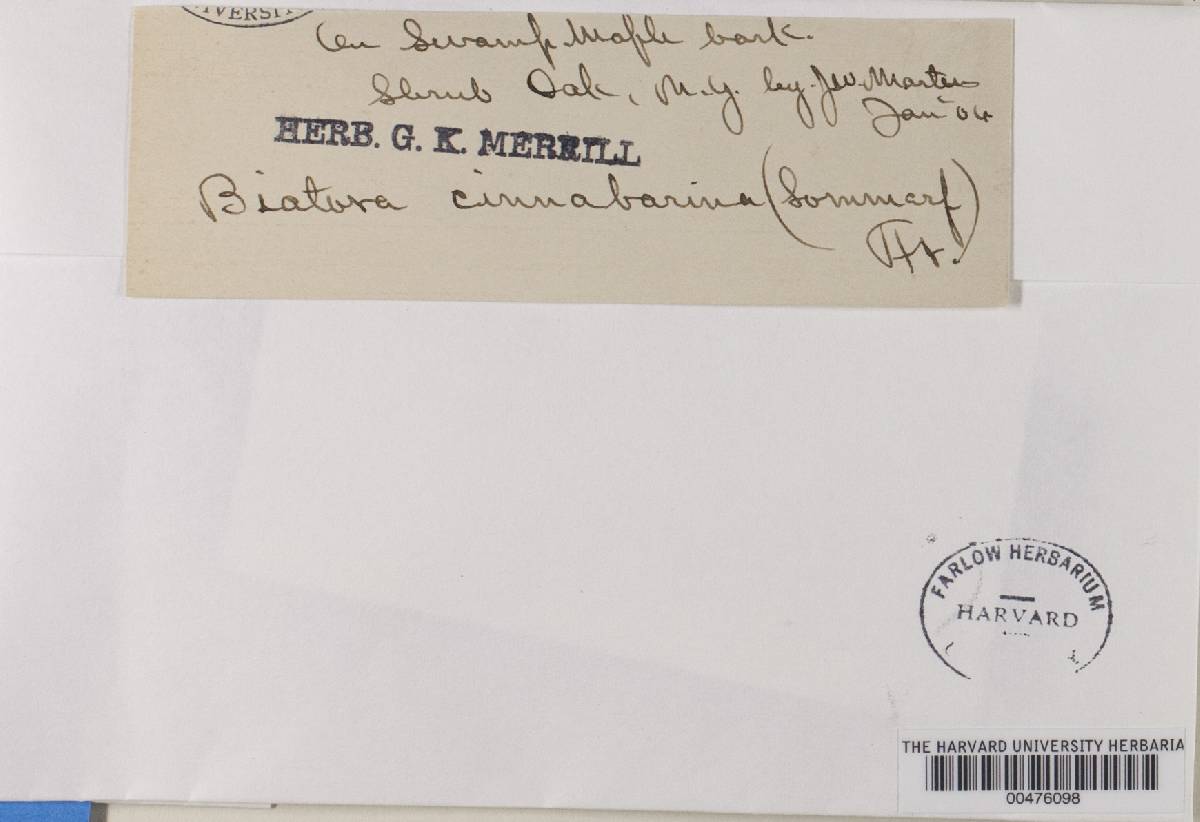 On Swamp Maple bark.
Shrub Oak, N.Y. leg. J.W. Martens
Jan 04
HERB. G. K. MERRILL
Biatora cinnabarina (Sommerf)
Fr.
FARLOW HERBARIUM
HARVARD
THE HARVARD UNIVERSITY HERBARIA
00476098